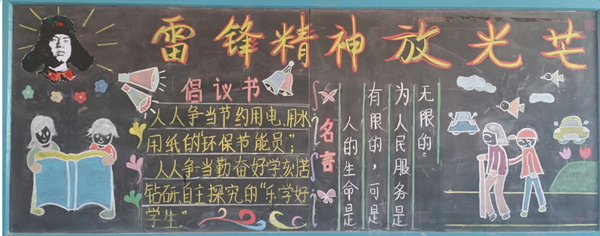 雷锋精神放光芒
倡议书
人人争当节约用电、用水
用纸的“环保节能员”;
人人争当勤奋好学刻苦
钻研、自主探究的“乐学好
学生”
名言
人的生命是
有限的,可是
为人民服务是
无限的。